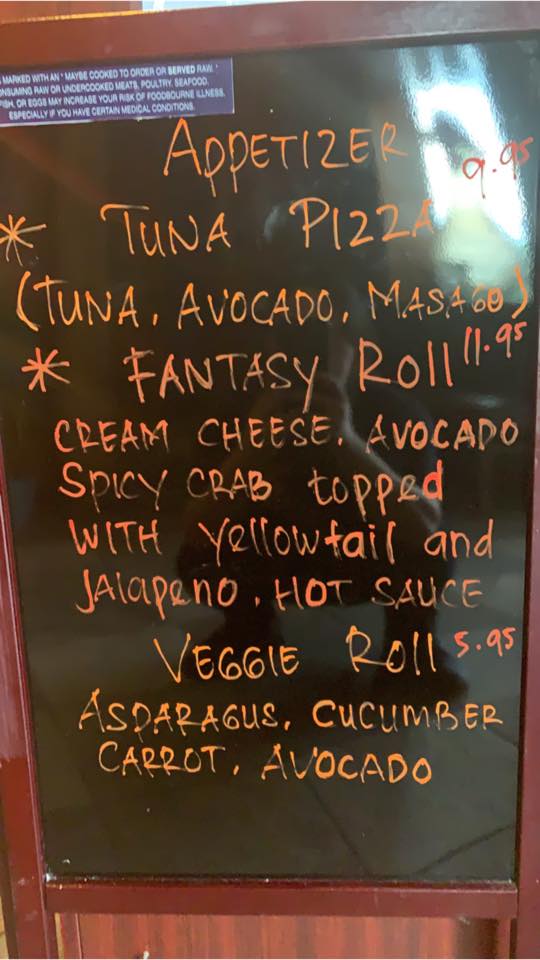 MARKED WITH AN * MAYBE COOKED TO ORDER OR SERVED RAW. *
CONSUMING RAW OR UNDERCOOKED MEATS, POULTRY, SEAFOOD,
FISH, OR EGGS MAY INCREASE YOUR RISK OF FOODBOURNE ILLNESS,
ESPECIALLY IF YOU HAVE CERTAIN MEDICAL CONDITIONS.
APPETIZER
9.95
* TUNA PIZZA
(TUNA, AVOCADO, MASAGO)
* FANTASY Roll 11.95
CREAM CHEESE, AVOCADO
SPICY CRAB topped
WITH Yellowtail and
JAlapeno, HOT SAUCE
VEGGIE Roll 5.95
ASPARAGUS, CUCUMBER
CARROT, AVOCADO